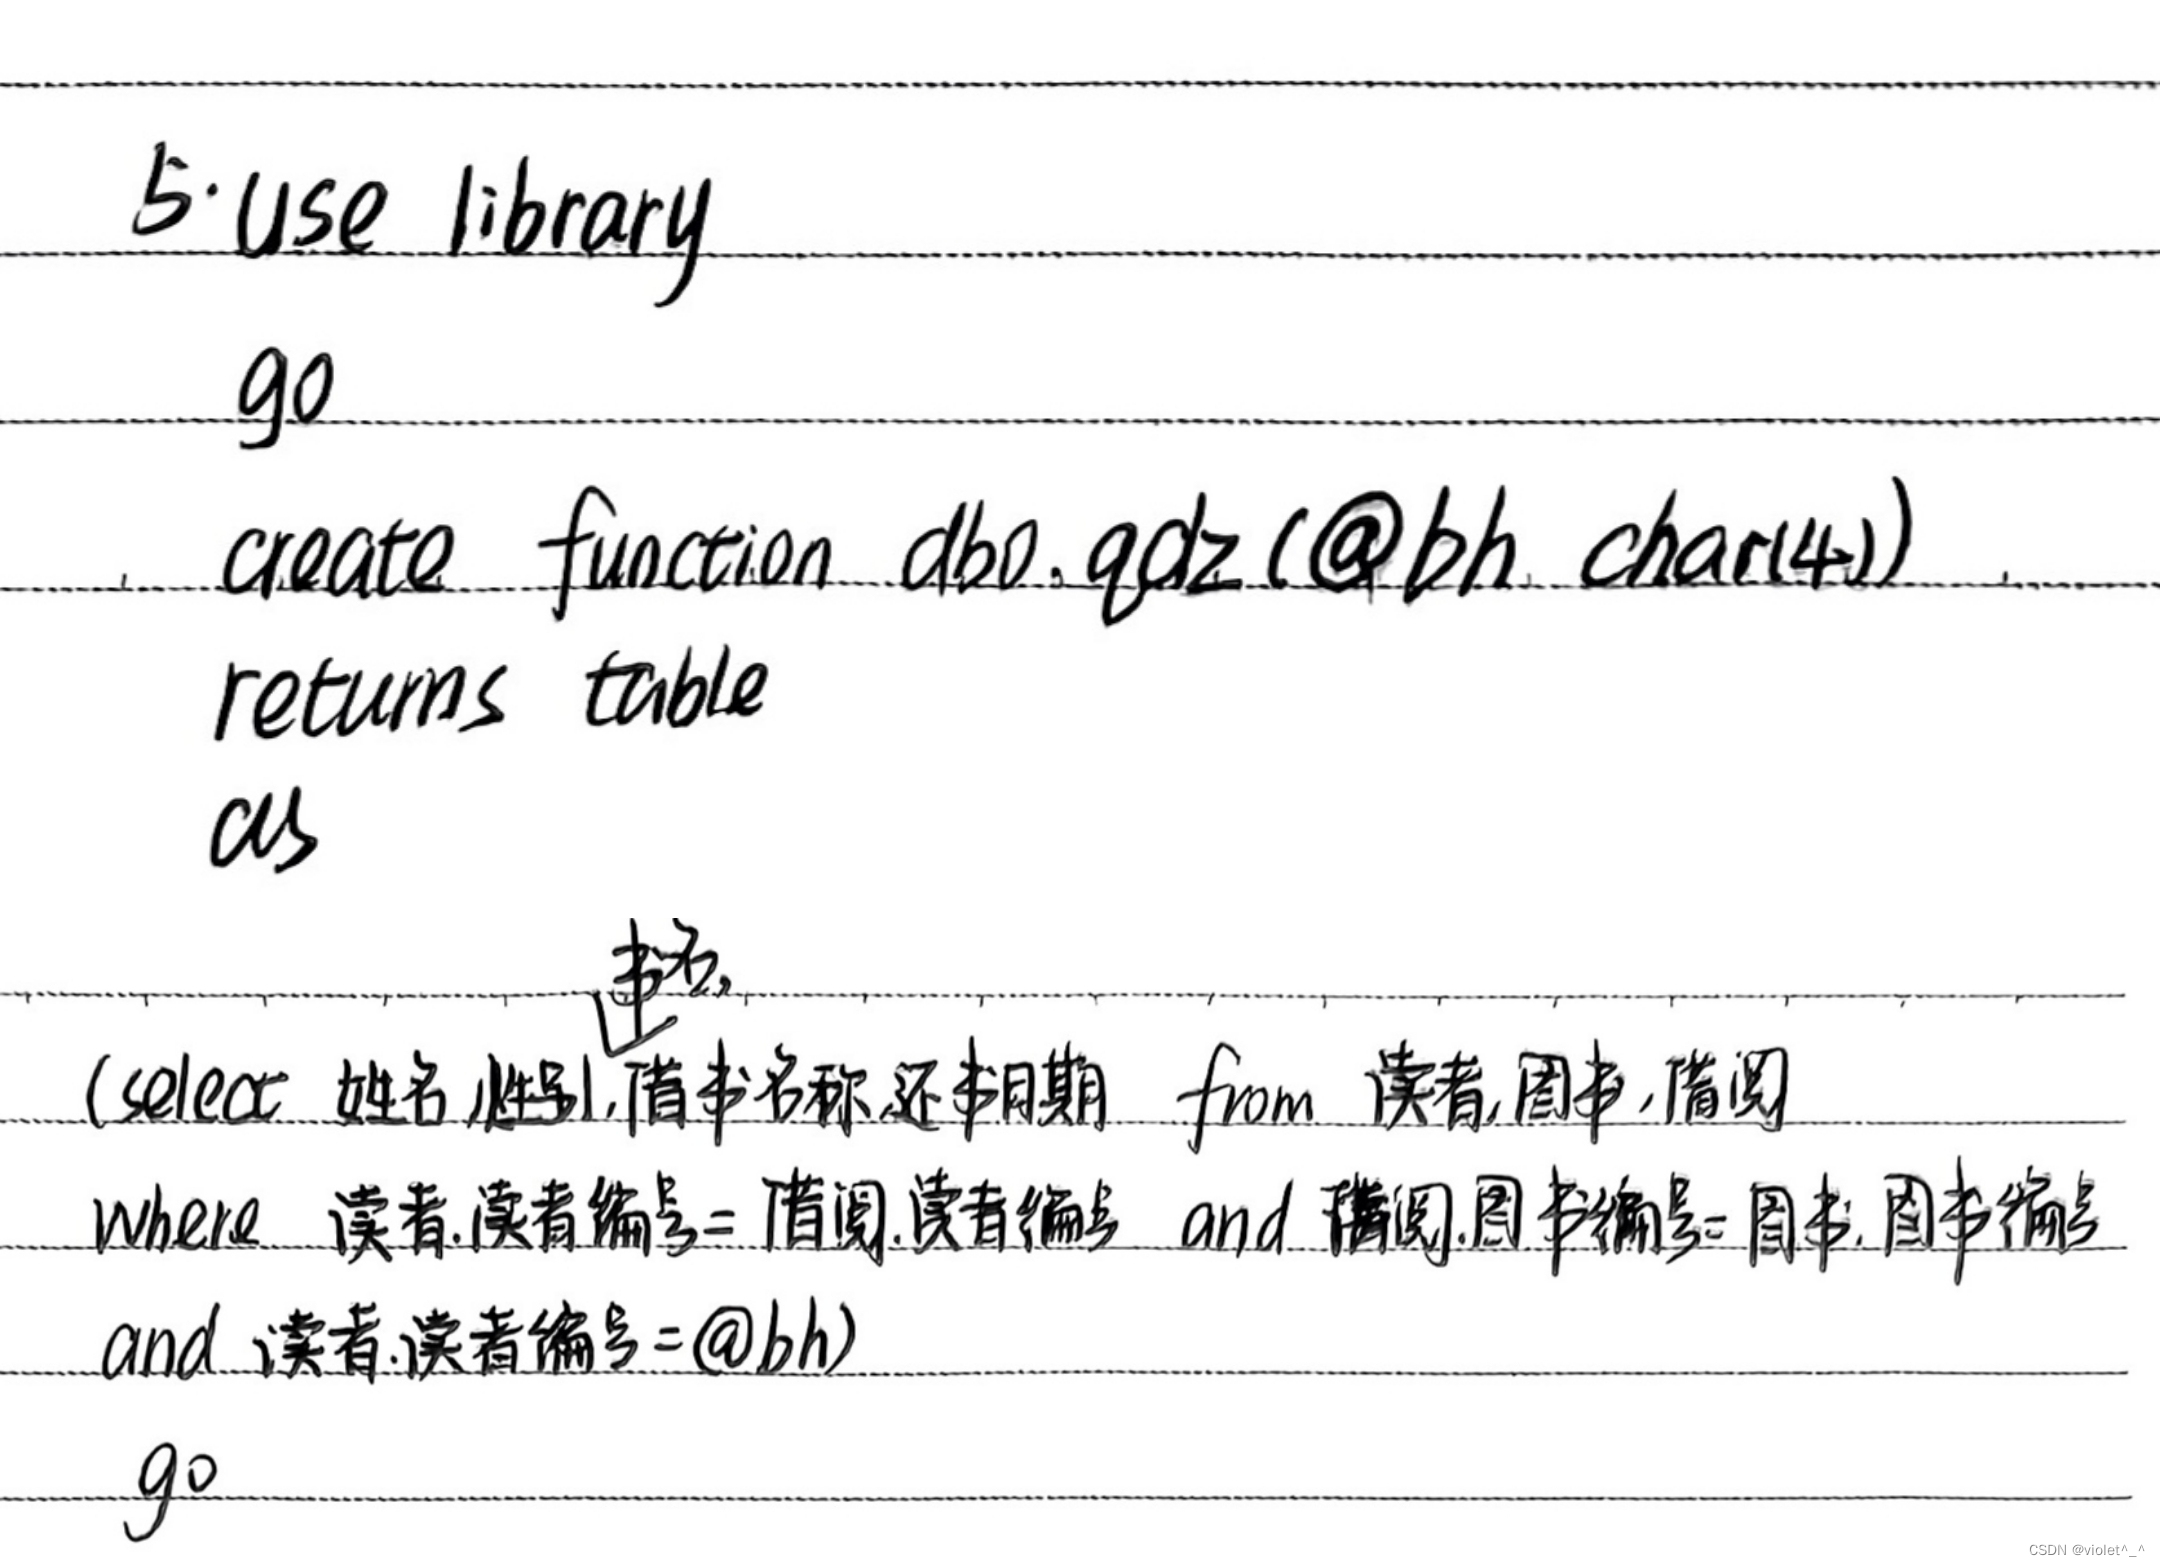 5. use library
go
create function dbo.qdz(@bh char(4))
returns table
as
书名,
(select 姓名,性别,借书名称,还书日期 from 读者,图书,借阅
where 读者.读者编号=借阅.读者编号 and 借阅.图书编号=图书.图书编号
and 读者.读者编号=@bh)
go
CSDN @violet^_^